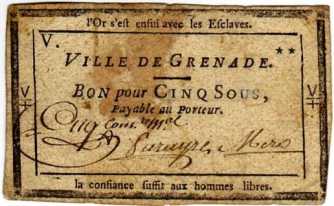 l'Or s'est enfui avec les Esclaves.
V.
VILLE DE GRENADE.
BON pour CINQ SOUS,
Payable au Porteur.
Cinq
la confiance suffit aux hommes libres.